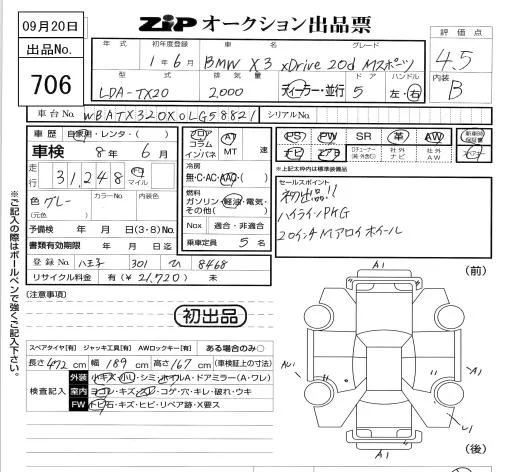 09月20日
ZiP オークション出品票
出品No.
706
評価点
4.5
内装
B
年式
初年度登録
車名
グレード
1年6月
BMW X3 xDrive 20d Mスポーツ
型式
排気量
ドア
ハンドル
LDA-TX20
2,000
ディーラー・並行
5
左・右
車台No.
WBATX320X0LG58821
シリアルNo.
車歴
自家用・レンタ・( )
車検
8年6月
走行
31,248
マイル
色
グレー
カラーNo.
内装色
(元色)
予備検 年 月 日(3・8)No.
書類有効期限 年 月 日迄
登録No.
八王子 301 ひ 8468
リサイクル料金 有(¥ 21,720 ) 未
フロア
コラム
インパネ
AT
MT
速
冷房
無・C・AC・AAC・( )
燃料
ガソリン・軽油・電気・
その他( )
Nox 適合・非適合
乗車定員 5名
PS
PW
SR
革
AW
新車時保証書
ナビ
エアB
社外ナビ
社外AW
※上記太枠内は標準装備品
セールスポイント
初出品!!
ハイラインPKG
20インチMアロイホイール
※ご記入の際はボールペンで強くご記入下さい。
(注意事項)
初出品
スペアタイヤ[有] ジャッキ工具[有] AWロックキー[有] ある場合のみ○
長さ 472 cm 幅 189 cm 高さ 167 cm (車検証上の寸法)
検査記入
外装 小キズ・小凹・シミ・ホイルA・ドアミラー(A・ワレ)
内装 ヨゴレ・キズ・スレ・コゲ・穴・キレ・破れ・ウキ
FW トビ石・キズ・ヒビ・リペア跡・X要ス
(前)
A1
A1
A1
(後)